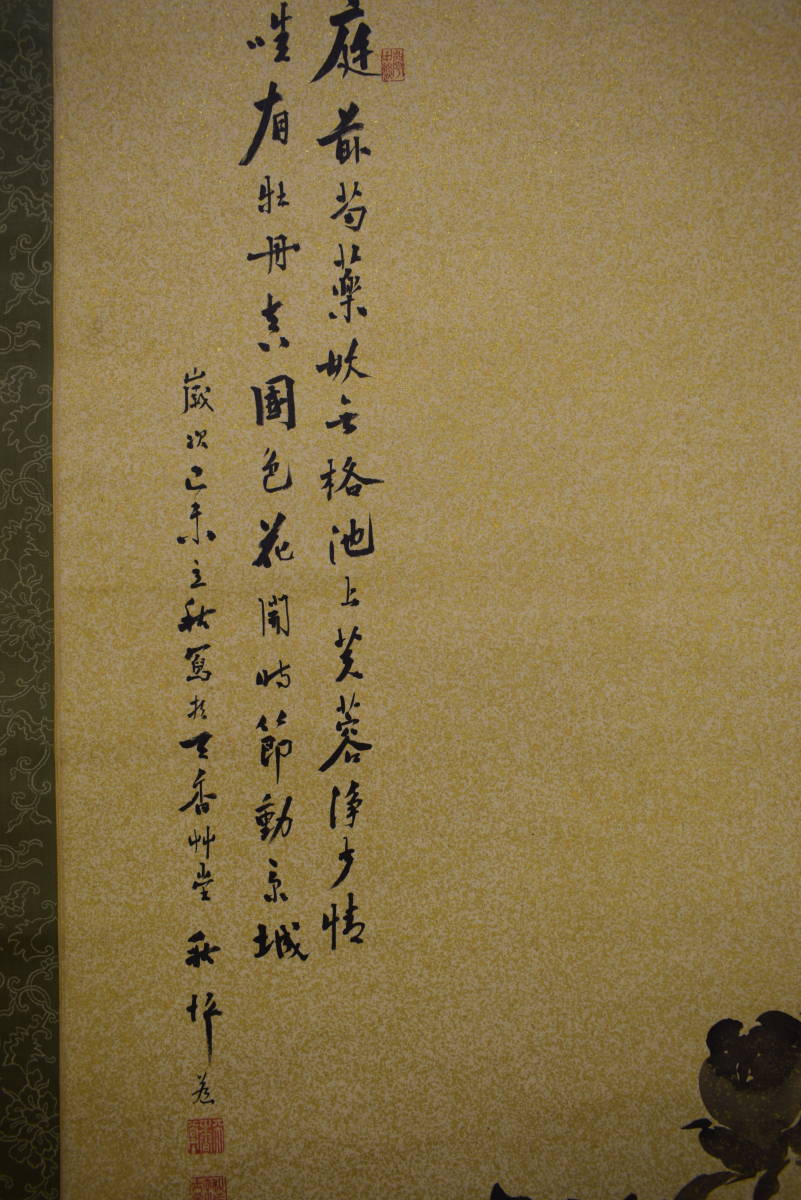 庭前芍藥妖無格池上芙蓉淨少情
唯有牡丹真國色花開時節動京城
歲次己未立秋寫於天香艸堂 秋